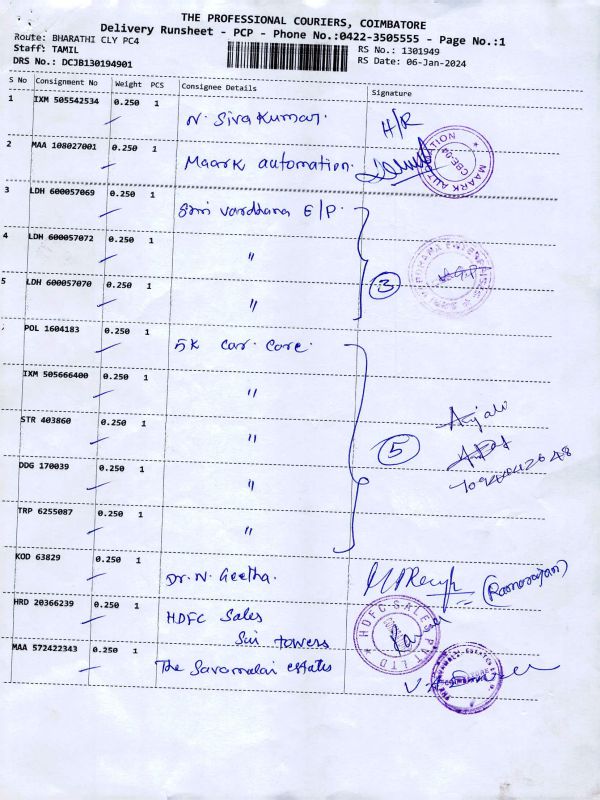 THE PROFESSIONAL COURIERS, COIMBATORE
Delivery Runsheet - PCP - Phone No.:0422-3505555 - Page No.:1
Route: BHARATHI CLY PC4
Staff: TAMIL
RS No.: 1301949
DRS No.: DCJB130194901
RS Date: 06-Jan-2024
S No Consignment No Weight PCS Consignee Details Signature
1 IXM 505542534 0.250 1
N. Siva Kumar. H/R
2 MAA 108027001 0.250 1
Maark automation. MAARK AUTOMATION CBE-04
3 LDH 600057069 0.250 1
Sri Vardhana E/P.
4 LDH 600057072 0.250 1
"
3
5 LDH 600057070 0.250 1
"
POL 1604183 0.250 1
5K Car Care
IXM 505666400 0.250 1
"
STR 403860 0.250 1
"
5
DDG 170039 0.250 1
"
TRP 6255087 0.250 1
"
KOD 63829 0.250 1
Dr. N. Geetha. (Ramarajan)
HRD 20366239 0.250 1
HDFC Sales
Sai towers
HDFC SALES PVT LTD
MAA 572422343 0.250 1
The Savamalai estates